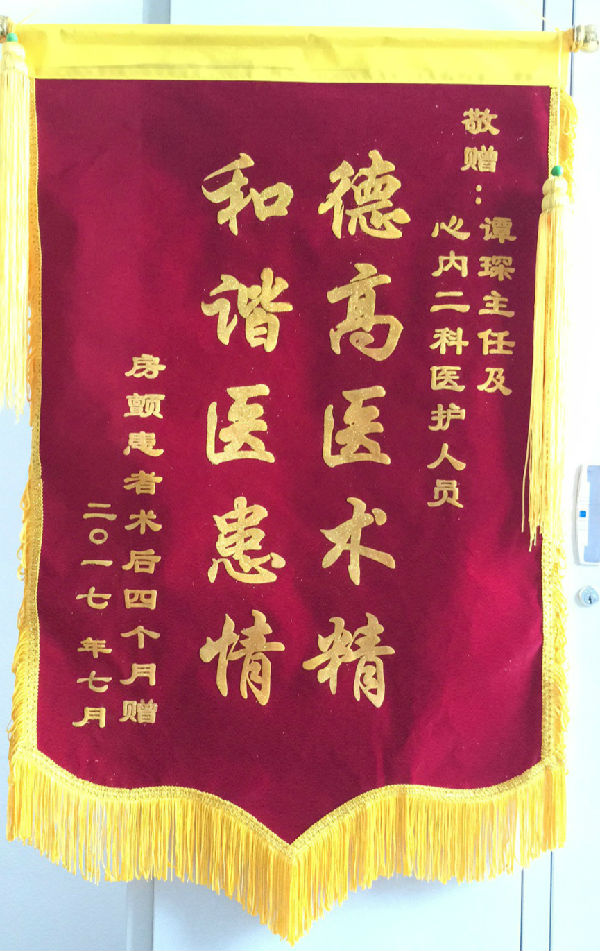 敬赠：谭琛主任及
心内二科医护人员
德高医术精
和谐医患情
房颤患者术后四个月赠
二〇一七年七月